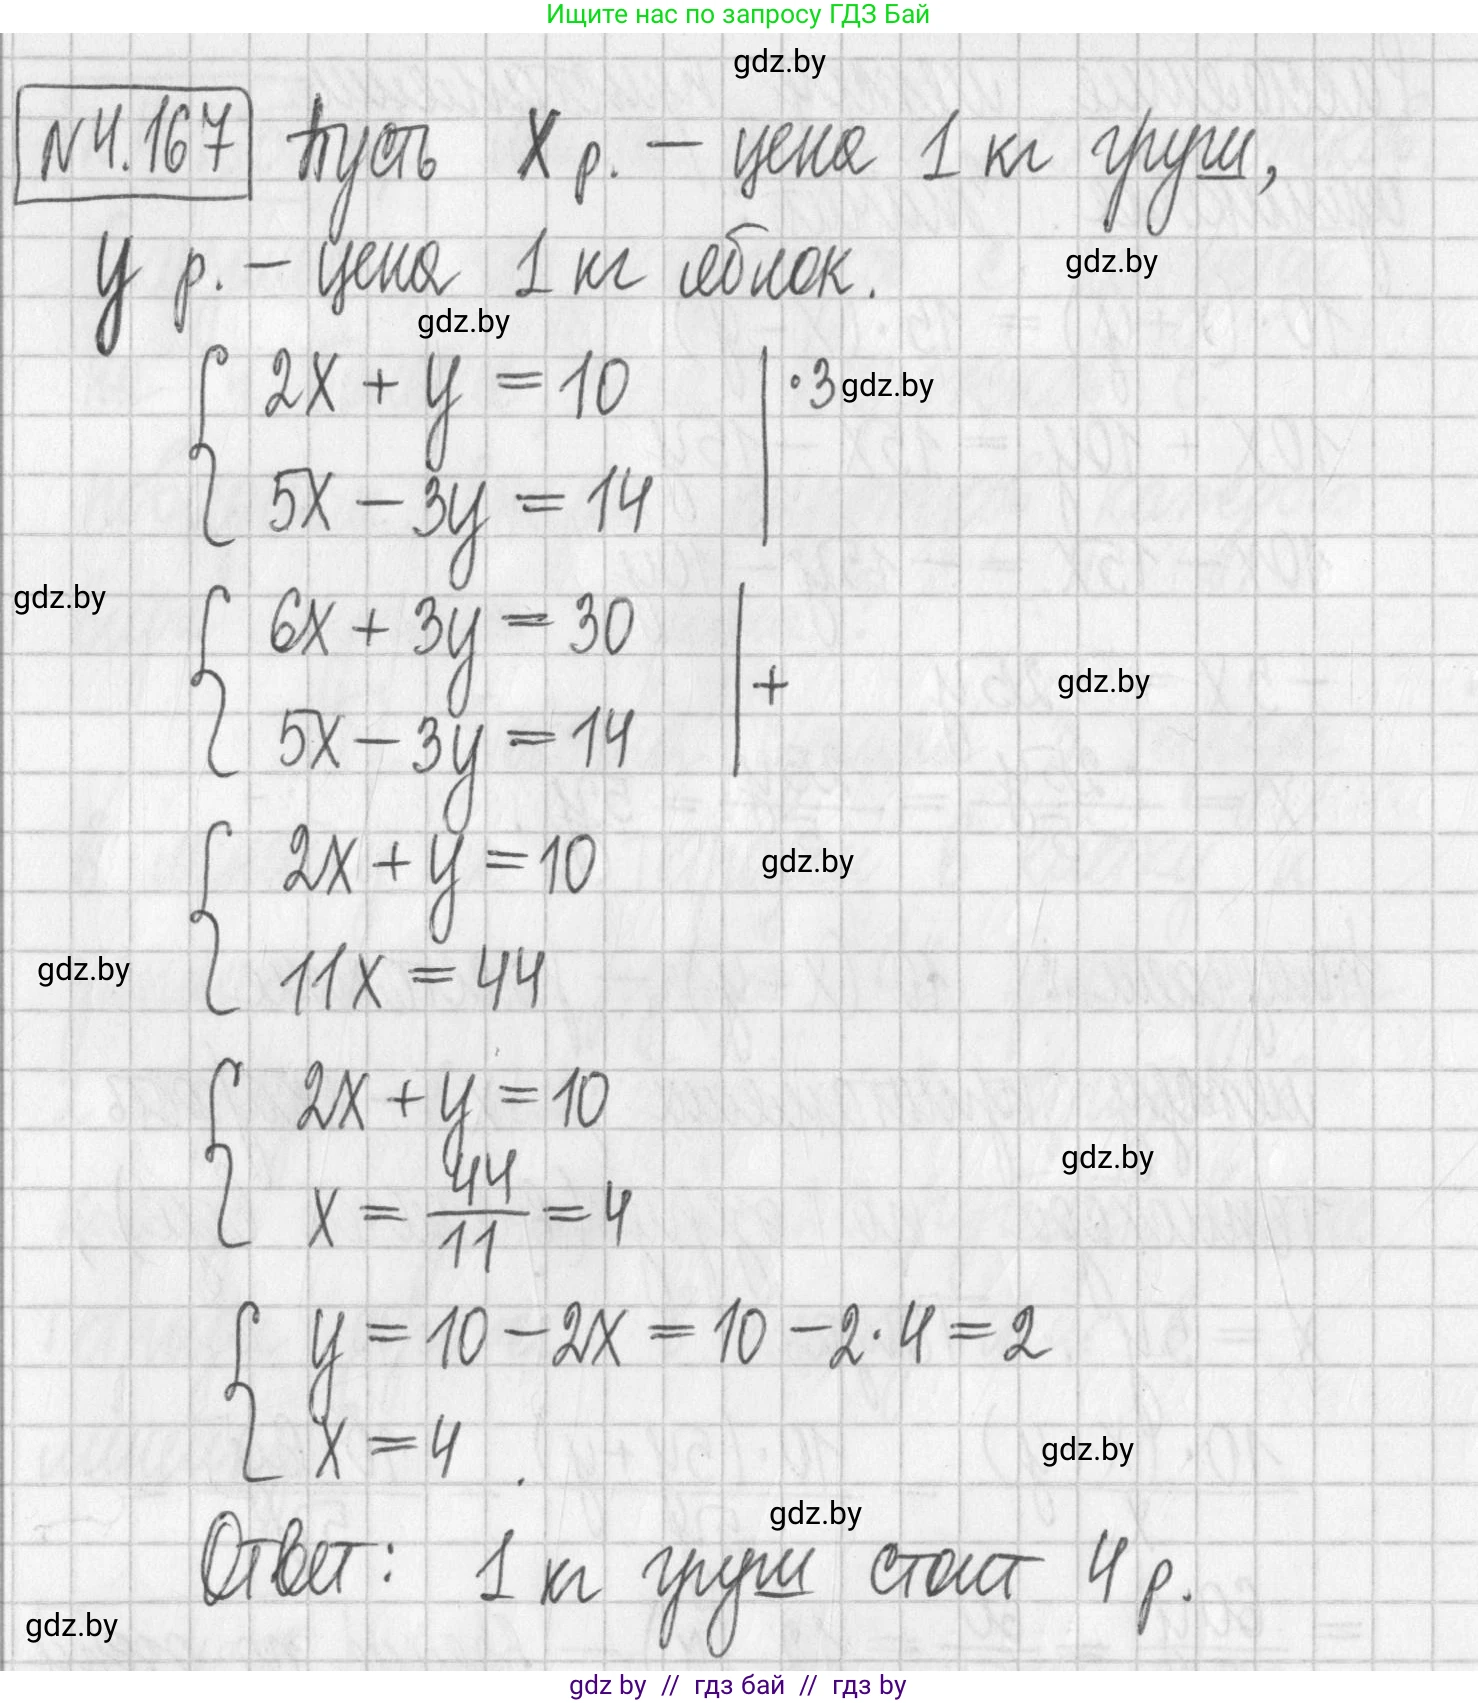 Ищите нас по запросу ГДЗ Бай
gdz.by
№4.167 Пусть x р. – цена 1 кг груш,
y р. – цена 1 кг яблок.
gdz.by
gdz.by
2x + y = 10 | ·3
gdz.by
5x – 3y = 14
gdz.by
6x + 3y = 30
+
gdz.by
5x – 3y = 14
2x + y = 10
gdz.by
gdz.by
11x = 44
2x + y = 10
gdz.by
x = 44/11 = 4
y = 10 – 2x = 10 – 2·4 = 2
x = 4.
gdz.by
gdz.by
Ответ: 1 кг груш стоит 4 р.
gdz.by
gdz by // гдз бай // гдз by